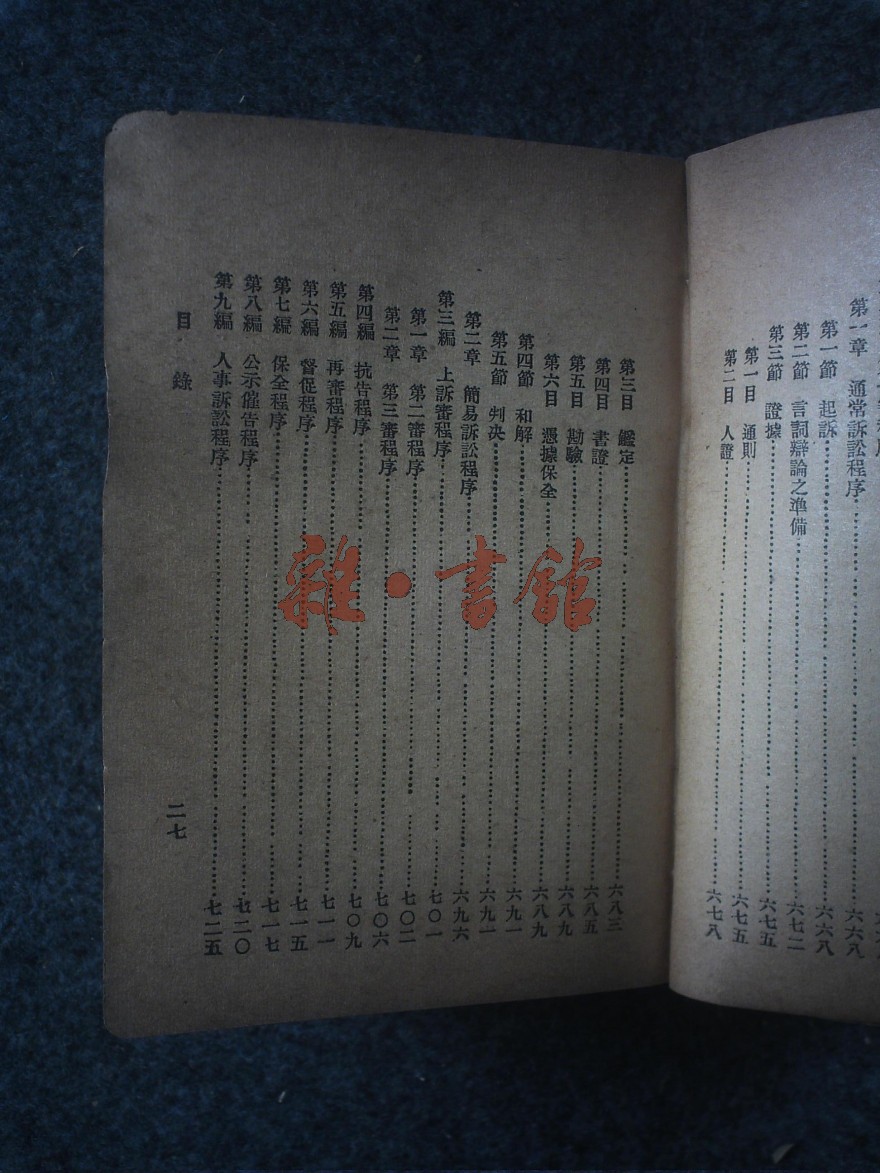 第一章 通常訴訟程序……六六八
第一節 起訴……六六八
第二節 言詞辯論之準備……六七二
第三節 證據……六七五
第一目 通則……六七五
第二目 人證……六七八
第三目 鑑定……六八三
第四目 書證……六八五
第五目 勘驗……六八九
第六目 憑據保全……六八九
第四節 和解……六九一
第五節 判決……六九一
第二章 簡易訴訟程序……六九六
第三編 上訴審程序……七〇一
第一章 第二審程序……七〇二
第二章 第三審程序……七〇六
第四編 抗告程序……七〇九
第五編 再審程序……七一一
第六編 督促程序……七一五
第七編 保全程序……七一七
第八編 公示催告程序……七二〇
第九編 人事訴訟程序……七二五
目錄
二七
雜·書館